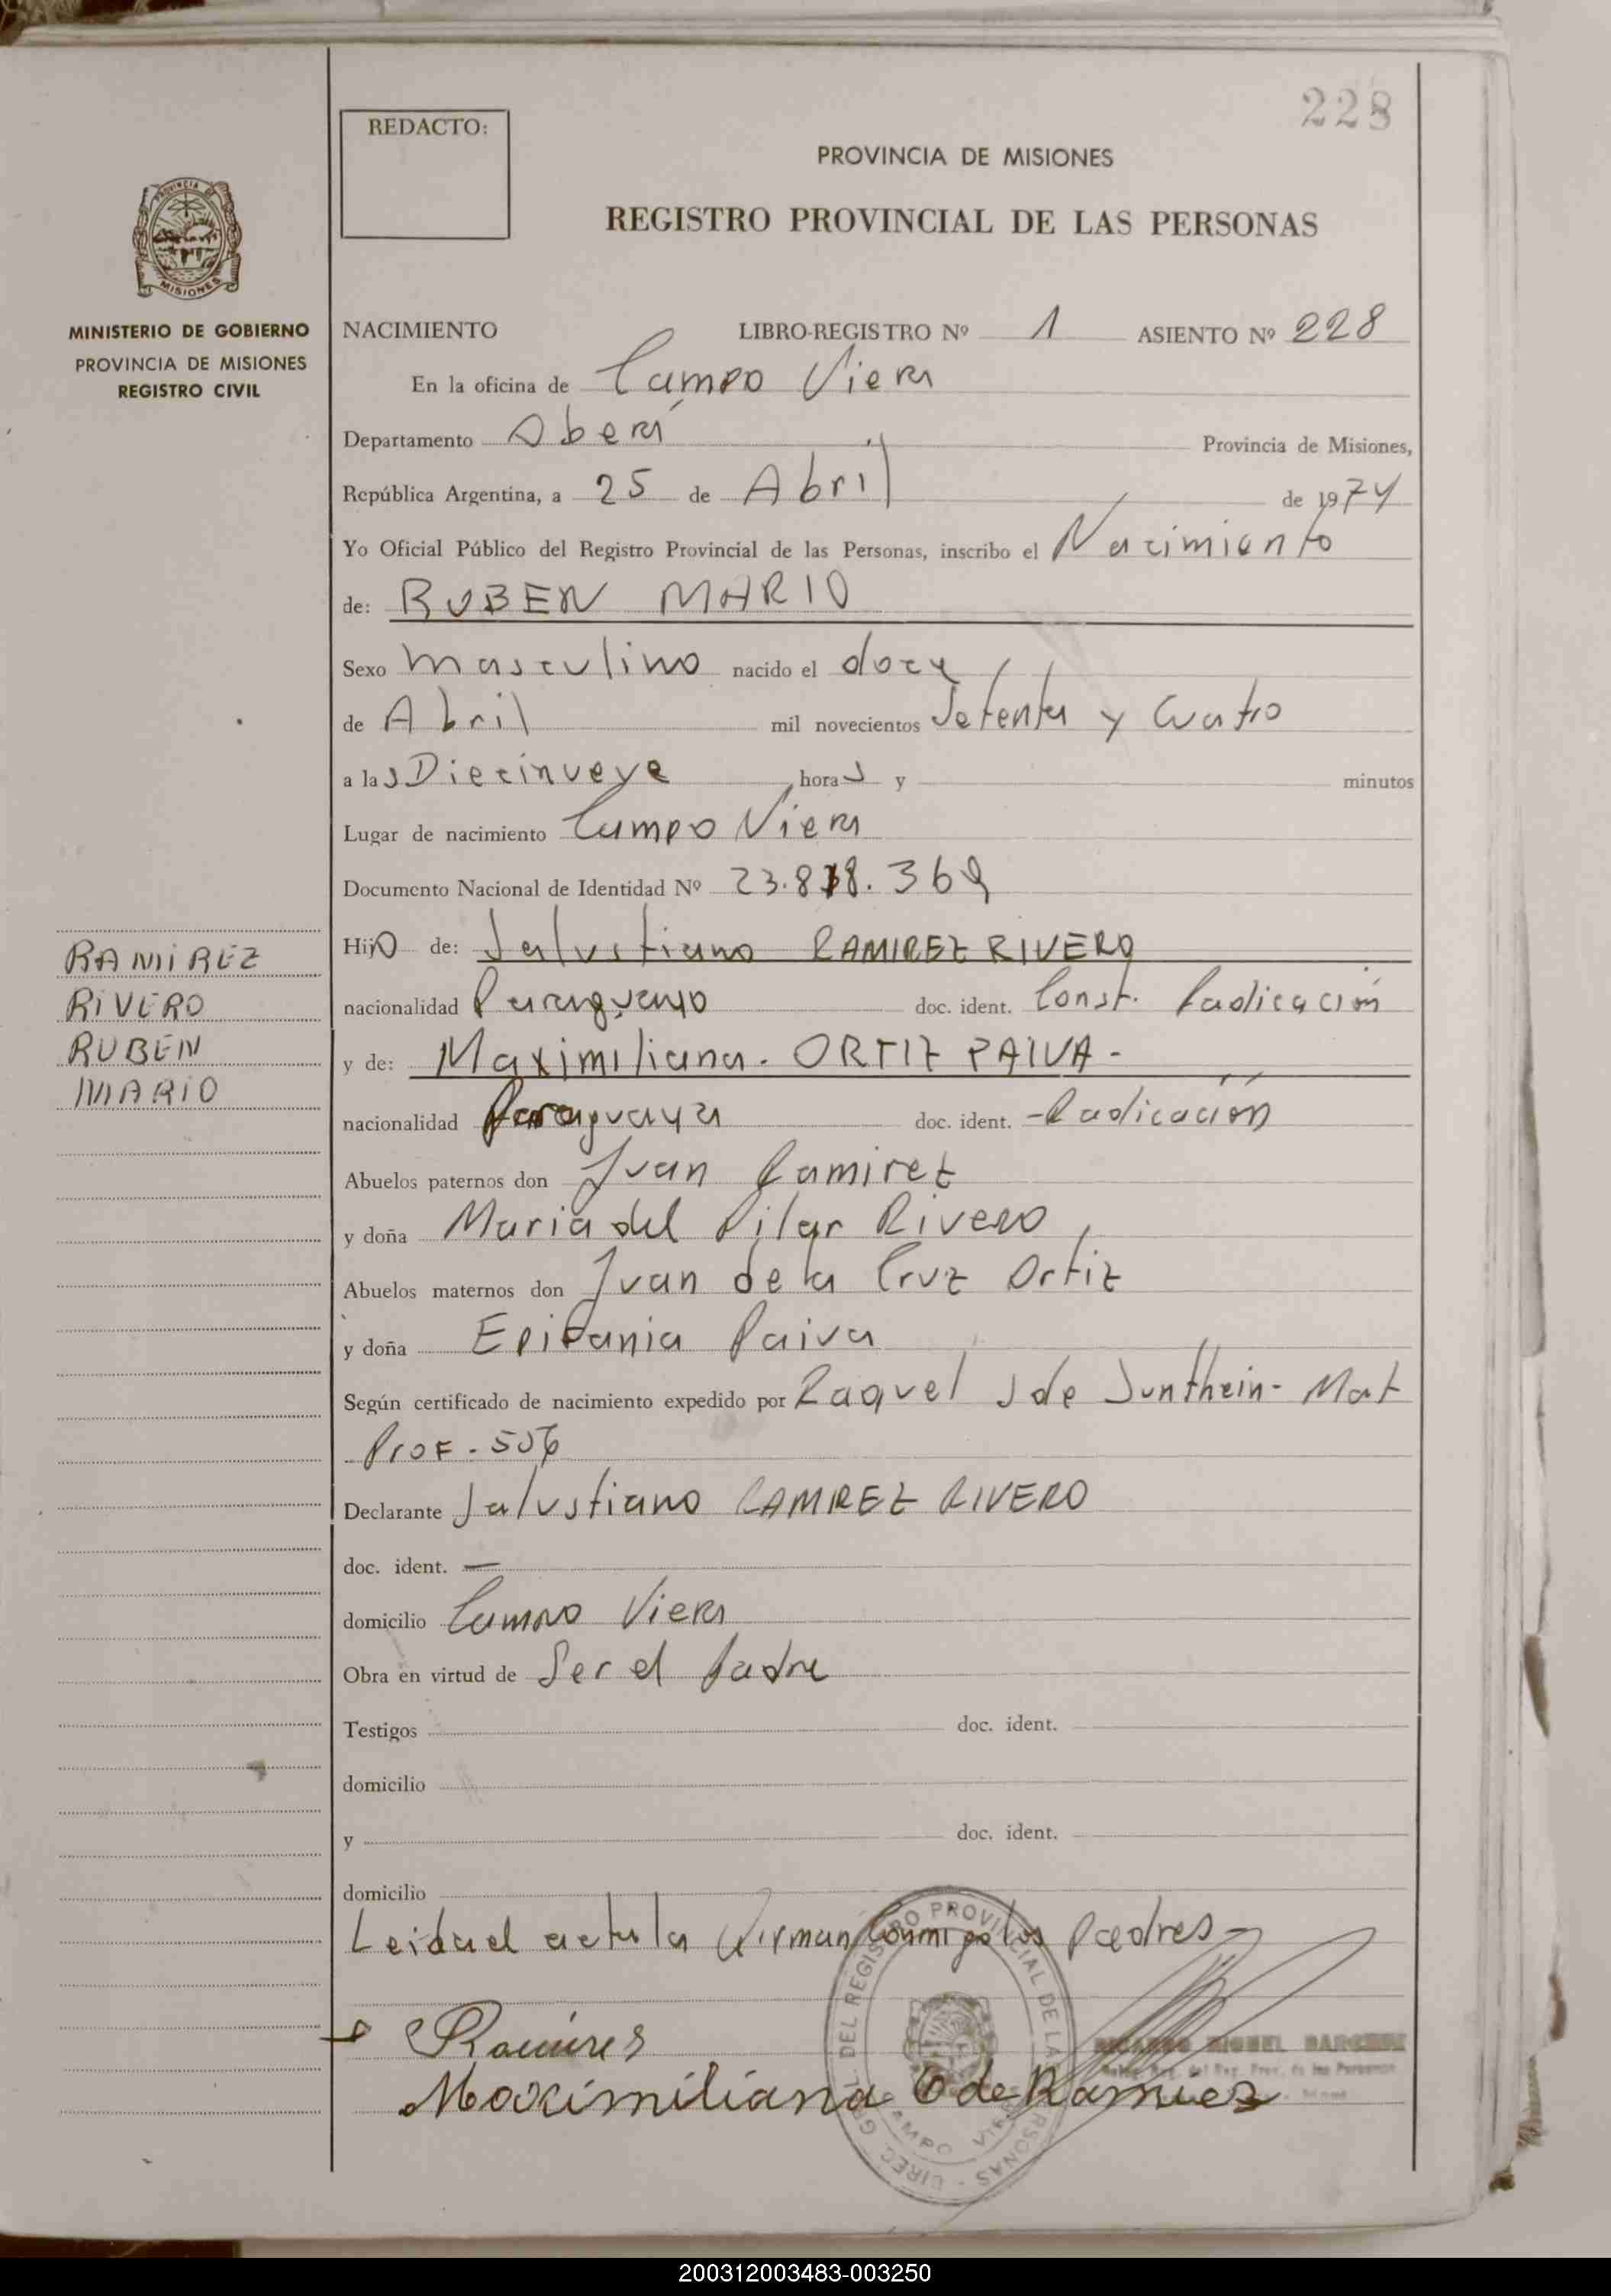 228
REDACTO:
PROVINCIA DE MISIONES
REGISTRO PROVINCIAL DE LAS PERSONAS
PROVINCIA DE
MISIONES
MINISTERIO DE GOBIERNO
PROVINCIA DE MISIONES
REGISTRO CIVIL
NACIMIENTO LIBRO-REGISTRO Nº 1 ASIENTO Nº 228
En la oficina de Campo Viera
Departamento Oberá Provincia de Misiones,
República Argentina, a 25 de Abril de 1974
Yo Oficial Público del Registro Provincial de las Personas, inscribo el Nacimiento
de: RUBEN MARIO
Sexo masculino nacido el doce
de Abril mil novecientos Setenta y Cuatro
a las Diecinueve horas y minutos
Lugar de nacimiento Campo Viera
Documento Nacional de Identidad Nº 23.818.369
Hijo de: Salustiano RAMIREZ RIVERO
nacionalidad Paraguayo doc. ident. Const. Radicación
y de: Maximiliana. ORTIZ PAIVA-
nacionalidad Paraguaya doc. ident. -Radicación
RAMIREZ
RIVERO
RUBEN
MARIO
Abuelos paternos don Juan Ramirez
y doña Maria del Pilar Rivero
Abuelos maternos don Juan de la Cruz Ortiz
y doña Epifania Paiva
Según certificado de nacimiento expedido por Raquel S de Sunthein- Mat
Prof. 506
Declarante Salustiano RAMIREZ RIVERO
doc. ident. —
domicilio Campo Viera
Obra en virtud de Ser el Padre
Testigos doc. ident.
domicilio
y doc. ident.
domicilio
Leida el acta la firman Conmigo los Padres-
Ramires
Maximiliana O de Ramirez
DIREC. GRAL. DEL REGISTRO PROVINCIAL DE LAS PERSONAS
CAMPO VIERA
RICARDO MIGUEL
del Reg. Prov. de las Personas
200312003483-003250